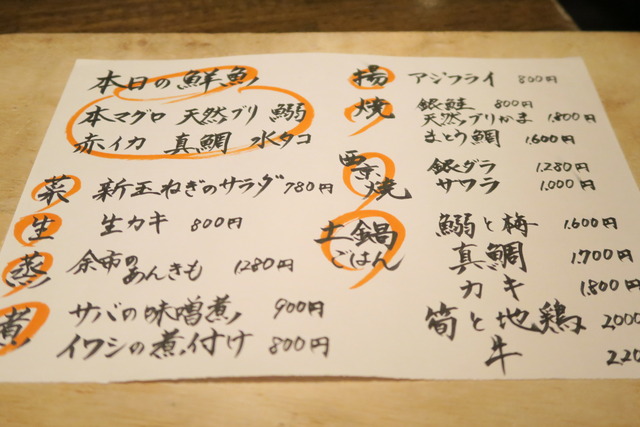 本日の鮮魚
本マグロ 天然ブリ 鰯
赤イカ 真鯛 水タコ
菜 新玉ねぎのサラダ 780円
生 生カキ 800円
蒸 余市のあんきも 1280円
煮 サバの味噌煮 900円
イワシの煮付け 800円
揚 アジフライ 800円
焼 銀鮭 800円
天然ブリかま 1.800円
まとう鯛 1.600円
西京焼 銀ダラ 1.280円
サワラ 1.000円
土鍋ごはん 鰯と梅 1.600円
真鯛 1.700円
カキ 1.800円
筍と地鶏 2000
牛 2.20